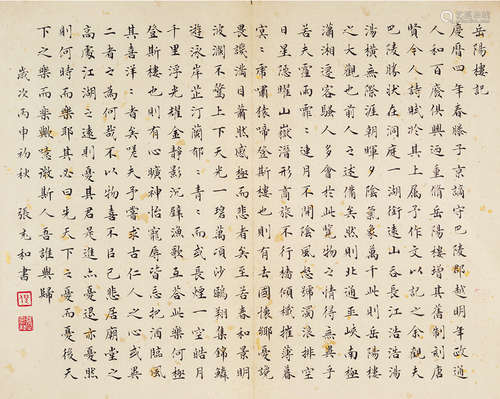 岳陽樓記
慶曆四年春滕子京謫守巴陵郡越明年政通
人和百廢俱興迺重脩岳陽樓增其舊制刻唐
賢今人詩賦於其上屬予作文以記之余觀夫
巴陵勝狀在洞庭一湖銜遠山吞長江浩浩湯
湯橫無際涯朝暉夕陰氣象萬千此則岳陽樓
之大觀也前人之述備矣然則北通巫峽南極
瀟湘遷客騷人多會於此覽物之情得無異乎
若夫霪雨霏〻連月不開陰風怒號濁浪排空
日星隱曜山嶽潛形商旅不行檣傾楫摧薄暮
冥〻虎嘯猿啼登斯樓也則有去國懷鄉憂讒
畏譏滿目蕭然感極而悲者矣至若春和景明
波瀾不驚上下天光一碧萬頃沙鷗翔集錦鱗
遊泳岸芷汀蘭郁〻青〻而或長煙一空皓月
千里浮光耀金靜影沉璧漁歌互答此樂何極
登斯樓也則有心曠神怡寵辱皆忘把酒臨風
其喜洋〻者矣嗟夫予嘗求古仁人之心或異
二者之為何哉不以物喜不以己悲居廟堂之
高處江湖之遠則憂其君是進亦憂退亦憂然
則何時而樂耶其必曰先天下之憂而憂後天
下之樂而樂歟噫微斯人吾誰與歸
歲次丙申初秋 張充和書